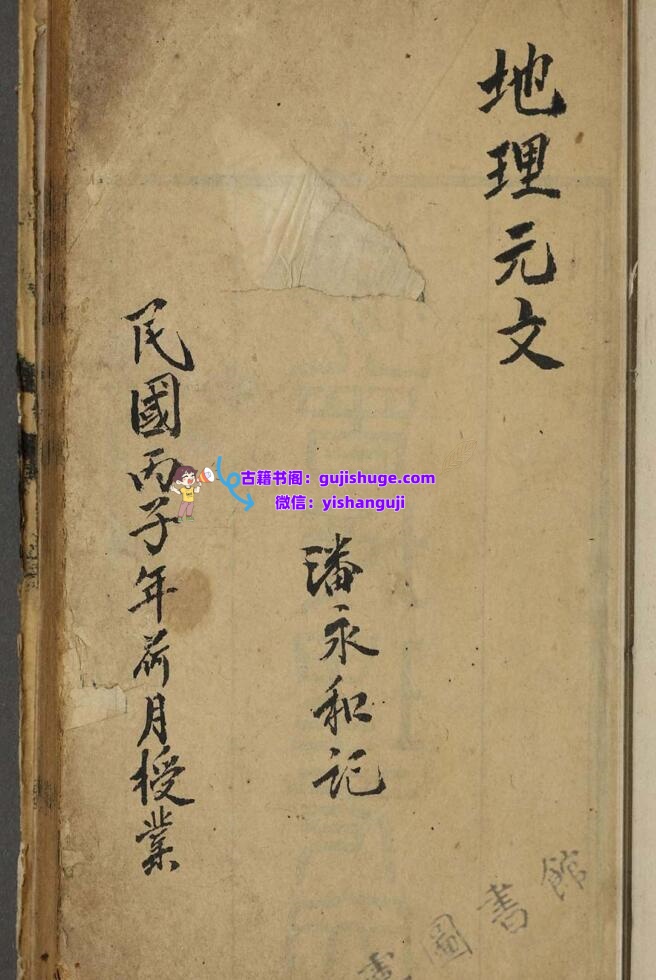 地理元文
潘永和记
民國丙子年荷月授業
古籍书阁：gujishuge.com
微信：yishanguji
圖書館